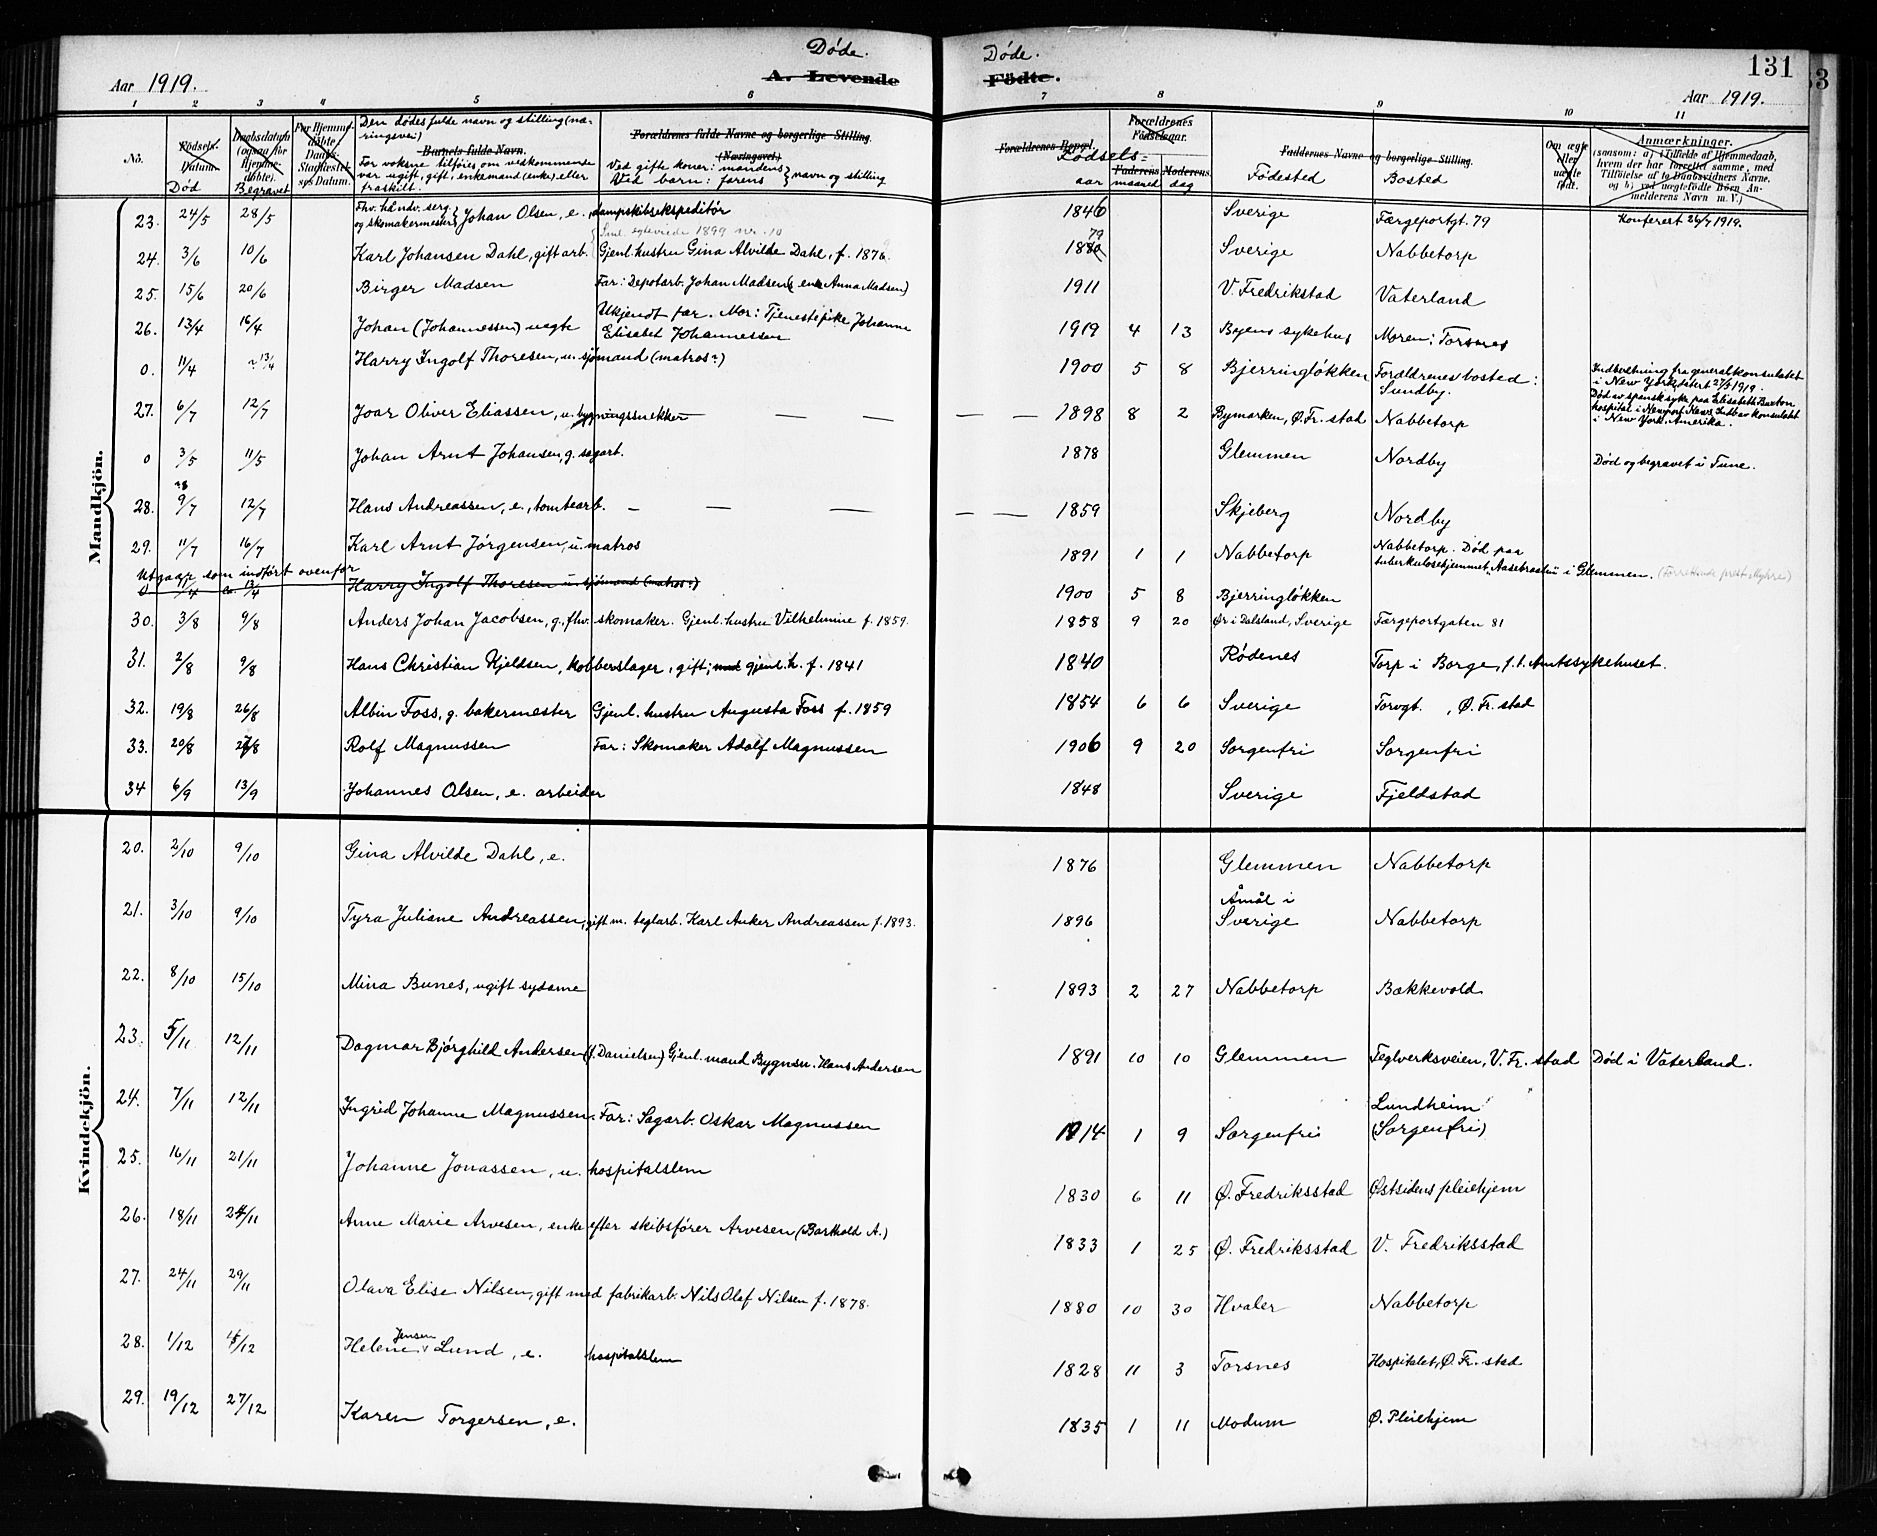 Døde. Døde. 131
Aar 1919. A. Levende Födte. Aar 1919.
1 2 3 4 5 6 7 8 9 10 11
No. Födsels-Datum. Død
Daabsdatum (ogsaa for Hjemmedöbte). Begravet
For Hjemmedöbte Daabs Stadfæstelses Datum.
Den dødes fulde navn og stilling (næringsvei)
Barnets fulde Navn.
For voksne tilføies om vedkommende var ugift, gift, enkemand (enke) eller fraskilt.
Forældrenes fulde Navne og borgerlige Stilling. (Næringsvei)
Ved gifte koner: mandens
Ved barn: farens } navn og stilling
Forældrenes Bopæl. Fødsels=
aar
Forældrenes Födselsaar.
Faderens maaned Moderens dag
Faddernes Navne og borgerlige Stilling.
Fødested Bosted
Om ægte eller uægte födt.
Anmærkninger.
(saasom: a) i Tilfælde af Hjemmedaab, hvem der har forrettet samme, med Tilföielse af to Daabsvidners Navne, og b) ved uægtefödte Börn Anmelderens Navn m. V.)
Mandkjön.
23. 24/5 28/5 Fhv. håndv. serg. og skomakermester} Johan Olsen, e., dampskibsekspeditør 1846 Sverige Færgeportgt. 79 Konferert 26/7 1919.
Sml. egteviede 1899 nr. 10
24. 3/6 10/6 Karl Johansen Dahl, gift arb. Gjenl. hustru Gina Alvilde Dahl, f. 1876. 1880 79 Sverige Nabbetorp
25. 15/6 20/6 Birger Madsen Far: Depotarb. Johan Madsen (enke Anna Madsen) 1911 V. Fredrikstad Vaterland
26. 13/4 16/4 Johan (Johannessen) uegte Ukjendt far. Mor: Tjenestepike Johanne Elisabet Johannessen 1919 4 13 Byens sykehus Moren: Torsnes
0. 11/4 13/4 Harry Ingolf Thoresen, u. sjømand (matros?) 1900 5 8 Bjerringløkken Forældrenes bosted: Sundby. Indberetning fra generalkonsulatet i New York, datert 27/5 1919.
27. 6/7 12/7 Joar Oliver Eliassen, u. bygningssnekker — — — — — 1898 8 2 Bymarken, Ø. Fr. stad Nabbetorp Død av spansk syke paa Elisabeth Buxton hospital i Newport News. Indb. av konsulatet i New York, Amerika.
0 3/5 11/5 Johan Arnt Johansen, g. sagarb. 1878 Glemmen Nordby Død og begravet i Tune.
28. 9/7 12/7 Hans Andreassen, e., tomtearb. — — — — — — 1859 Skjeberg Nordby
29. 11/7 16/7 Karl Arnt Jørgensen, u. matros 1891 1 1 Nabbetorp Nabbetorp. Død paa tuberkulosehjemmet "Aasebraaten" i Glemmen. (Forrettende prest Myhre)
Utgaar, som indført ovenfor
0 11/4 ca. 13/4 Harry Ingolf Thoresen u. sjømand (matros?) 1900 5 8 Bjerringløkken
30. 3/8 9/8 Anders Johan Jacobsen, g., fhv. skomaker. Gjenl. hustru Vilhelmine f. 1859. 1858 9 20 Ør i Dalsland, Sverige Færgeportgaten 81
31. 2/8 9/8 Hans Christian Kjeldsen, kobberslager, gift; med gjenl. h. f. 1841 1840 Rødenes Torp i Borge, f. t. Amtssykehuset.
32. 19/8 26/8 Albin Foss, g. bakermester Gjenl. hustru Augusta Foss f. 1859 1854 6 6 Sverige Torvgt., Ø. Fr. stad
33. 20/8 27/8 Rolf Magnussen Far: Skomaker Adolf Magnussen 1906 9 20 Sorgenfri Sorgenfri
34 6/9 13/9 Johannes Olsen, e. arbeider 1848 Sverige Fjeldstad
Kvindekjön.
20. 2/10 9/10 Gina Alvilde Dahl, e. 1876 Glemmen Nabbetorp
21. 3/10 9/10 Tyra Juliane Andreassen, gift m. teglarb. Karl Anker Andreassen f. 1893. 1896 Åmål i Sverige Nabbetorp
22. 8/10 15/10 Mina Bunes, ugift sydame 1893 2 27 Nabbetorp Bækkevold
23. 5/11 12/11 Dagmar Bjørghild Andersen (f. Danielsen) Gjenl. mand Bygnsn. Hans Andersen 1891 10 10 Glemmen Teglverksveien, V. Fr. stad Død i Vaterland.
24. 7/11 12/11 Ingrid Johanne Magnussen. Far: Sagarb. Oskar Magnussen 1914 1 9 Sorgenfri Lundheim (Sorgenfri)
25. 16/11 21/11 Johanne Jonassen, u. hospitalslem 1830 6 11 Ø. Fredriksstad Østsidens pleiehjem
26. 18/11 24/11 Anne Marie Arvesen, enke efter skibsfører Arvesen (Barthold A.) 1833 1 25 Ø. Fredriksstad V. Fredriksstad
27. 24/11 29/11 Olava Elise Nilsen, gift med fabrikarb. Nils Olaf Nilsen f. 1878. 1880 10 30 Hvaler Nabbetorp
28. 1/12 15/12 Helene Jensen Lund, e. hospitalslem 1828 11 3 Torsnes Hospitalet, Ø. Fr. stad
29. 19/12 27/12 Karen Torgersen, e. 1835 1 11 Modum Ø. Pleiehjem